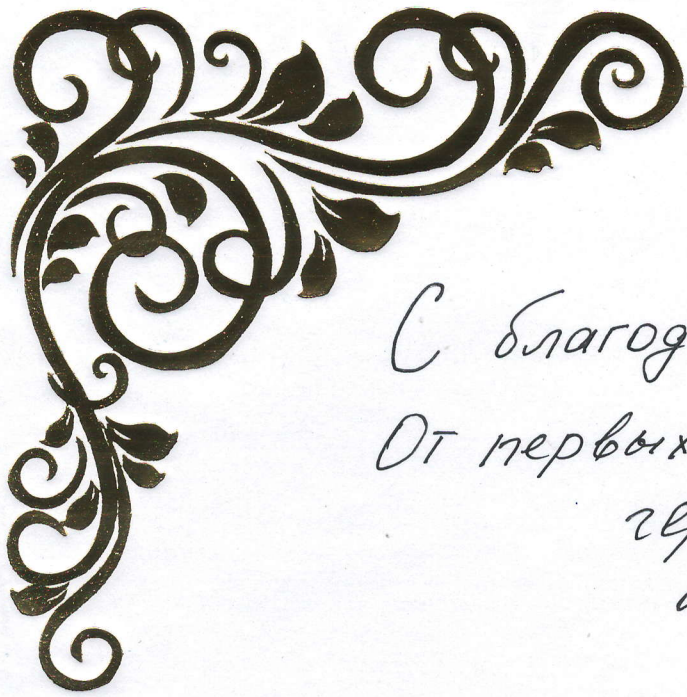 С благод
От первых